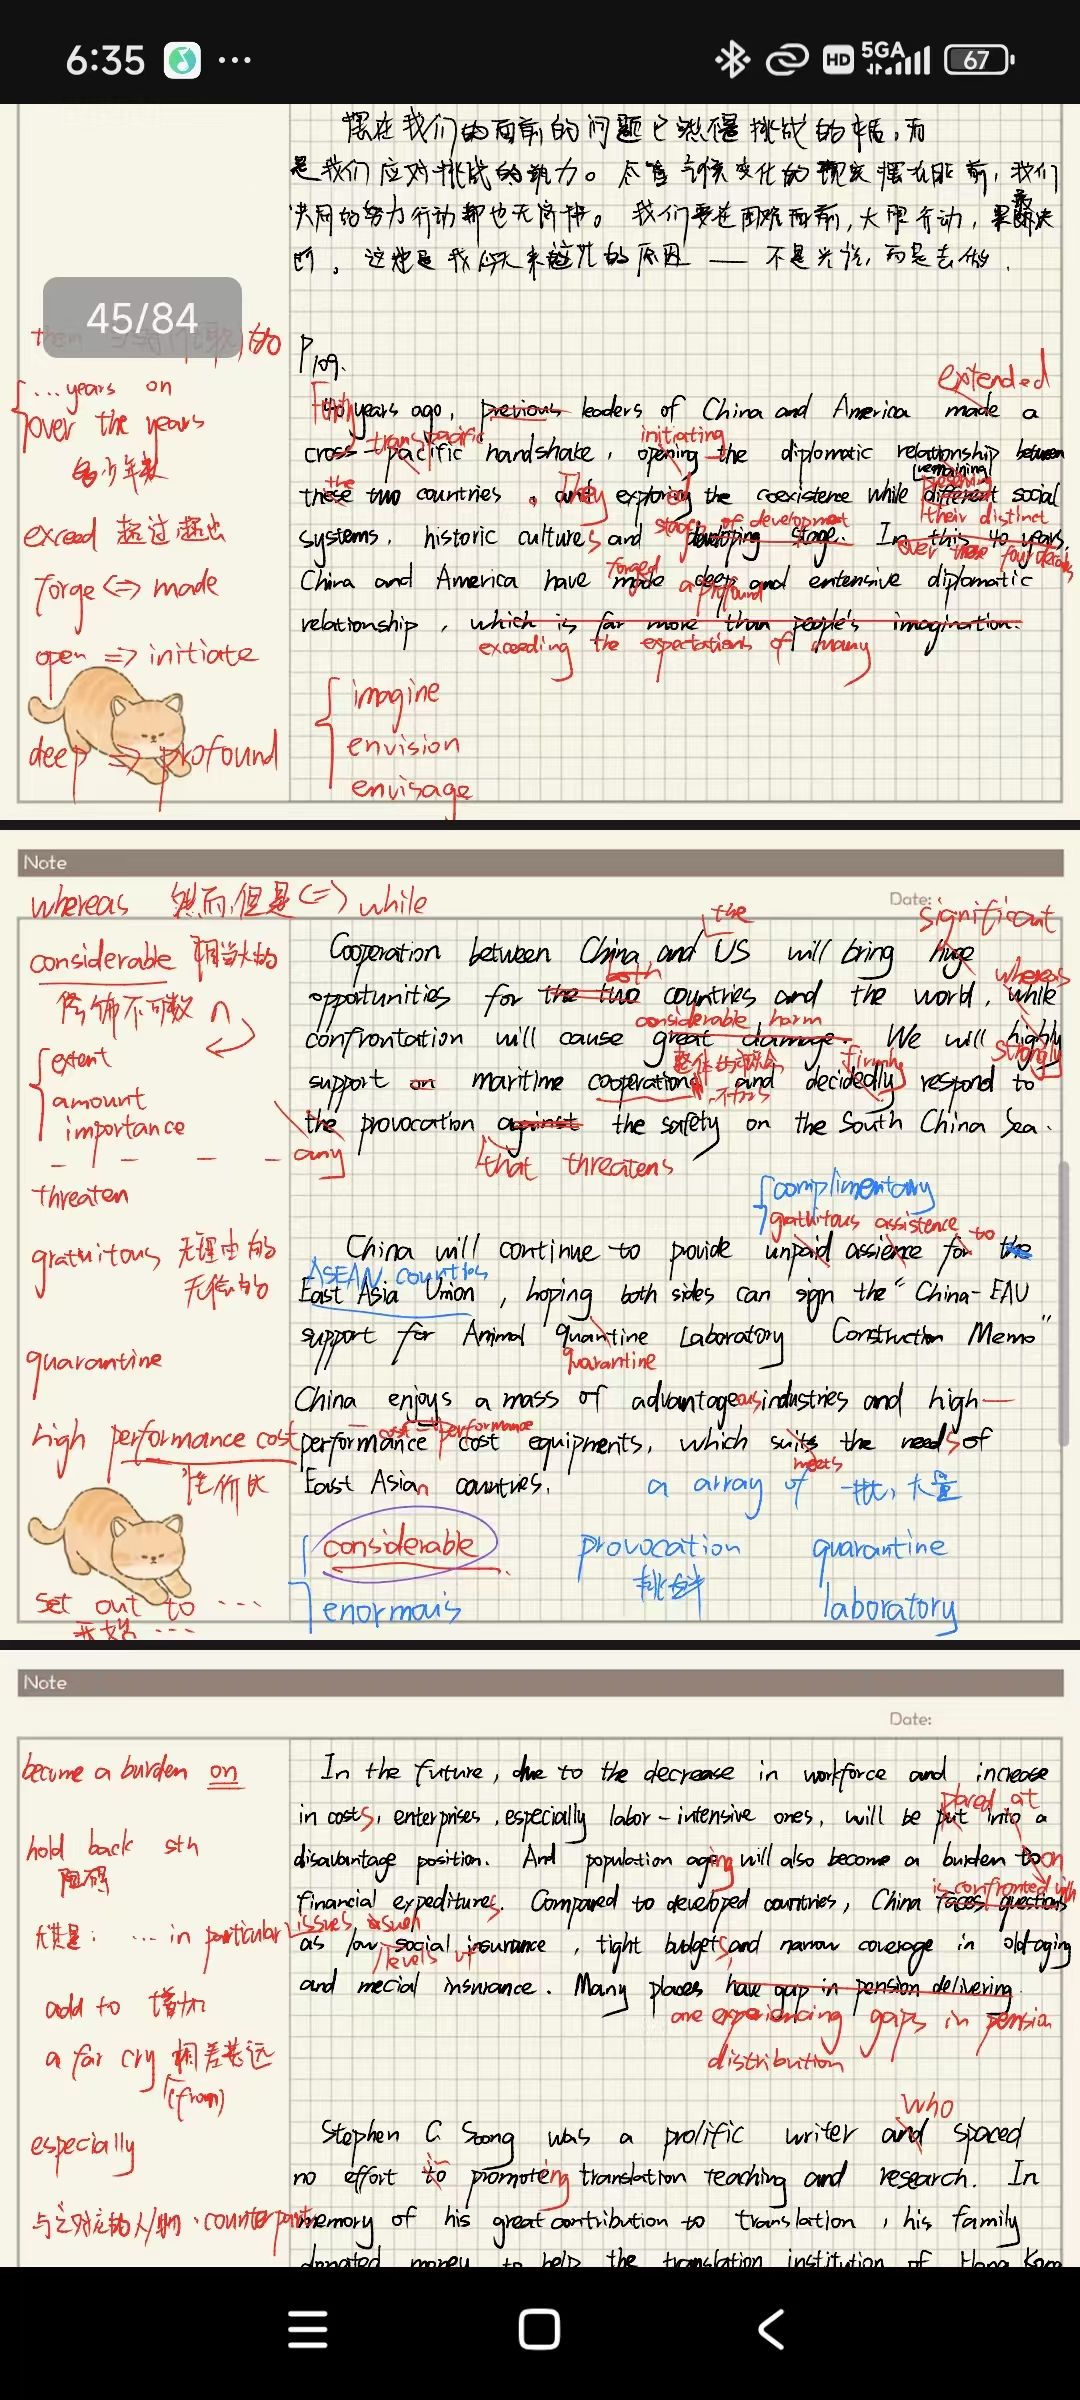 6:35
HD 5GA 67
摆在我们的面前的问题已然不是挑战的本质,而
是我们应对挑战的能力。尽管气候变化的现实摆在眼前,我们
共同的努力行动却也无济于。我们要在困难面前,大胆行动,果断决
断。这也是我今天来这儿的原因 —— 不是光说,而是去做.
45/84
P109.
... years on
over the years
多少年来
exceed 超过,超出
forge <=> made
open => initiate
deep => profound
extended
Forty
40 years ago, previous leaders of China and America made a
trans pacific initiating
cross-pacific handshake, opening the diplomatic relationship between
remaining
the They ed preserving
these two countries, and exploring the coexistence while different social
stages of development their distinct
systems, historic cultures and developing stage. In this 40 years,
forged a profound over these four decades
China and America have made deep and entensive diplomatic
relationship, which is far more than people's imagination.
exceeding the expectations of many
imagine
envision
envisage
Note
Date:
whereas 然而,但是 <=> while
considerable 相当大的
修饰不可数 n
extent
amount
importance
threaten
gratuitous 无理由的
无偿的
quarantine
high performance cost
性价比
set out to ...
开始 ...
the significant
Cooperation between China and US will bring huge
both whereas
opportunities for the two countries and the world, while
considerable harm
confrontation will cause great damage. We will highly
firmly strongly
support on maritime cooperations and decidedly respond to
the provocation against the safety on the South China Sea.
any that threatens
complimentary
gratuitous assistence to
China will continue to povide unpaid assience for the
ASEAN countries
East Asia Union, hoping both sides can sign the "China-EAU
support for Animal quantine Laboratory Construction Memo"
quarantine
China enjoys a mass of advantageous industries and high-
cost-performance
performance cost equipments, which suits the needs of
meets
East Asian countries.
a array of 一批,大量
considerable provocation quarantine
挑衅
enormous laboratory
Note
Date:
become a burden on
hold back sth
阻碍
尤其是: ... in particular
add to 增加
a far cry 相差甚远
(from)
especially
与之对应的人/物: counterparts
In the future, due to the decrease in workforce and increase
placed at
in costs, enterprises, especially labor-intensive ones, will be put into a
disavantage position. And population aging will also become a burden to on
is confronted with
financial expeditures. Compared to developed countries, China faces questions
issues such
as low social insurance, tight budgets and narrow coverage in old-aging
levels of
and mecial insurance. Many places have gap in pension delivering
are experiencing gaps in pension
distribution
who
Stephen C. Soong was a prolific writer and spaced
in
no effort to promoteing translation teaching and research. In
memory of his great contribution to translation, his family
donated money to help the translation institution of Hong Kong